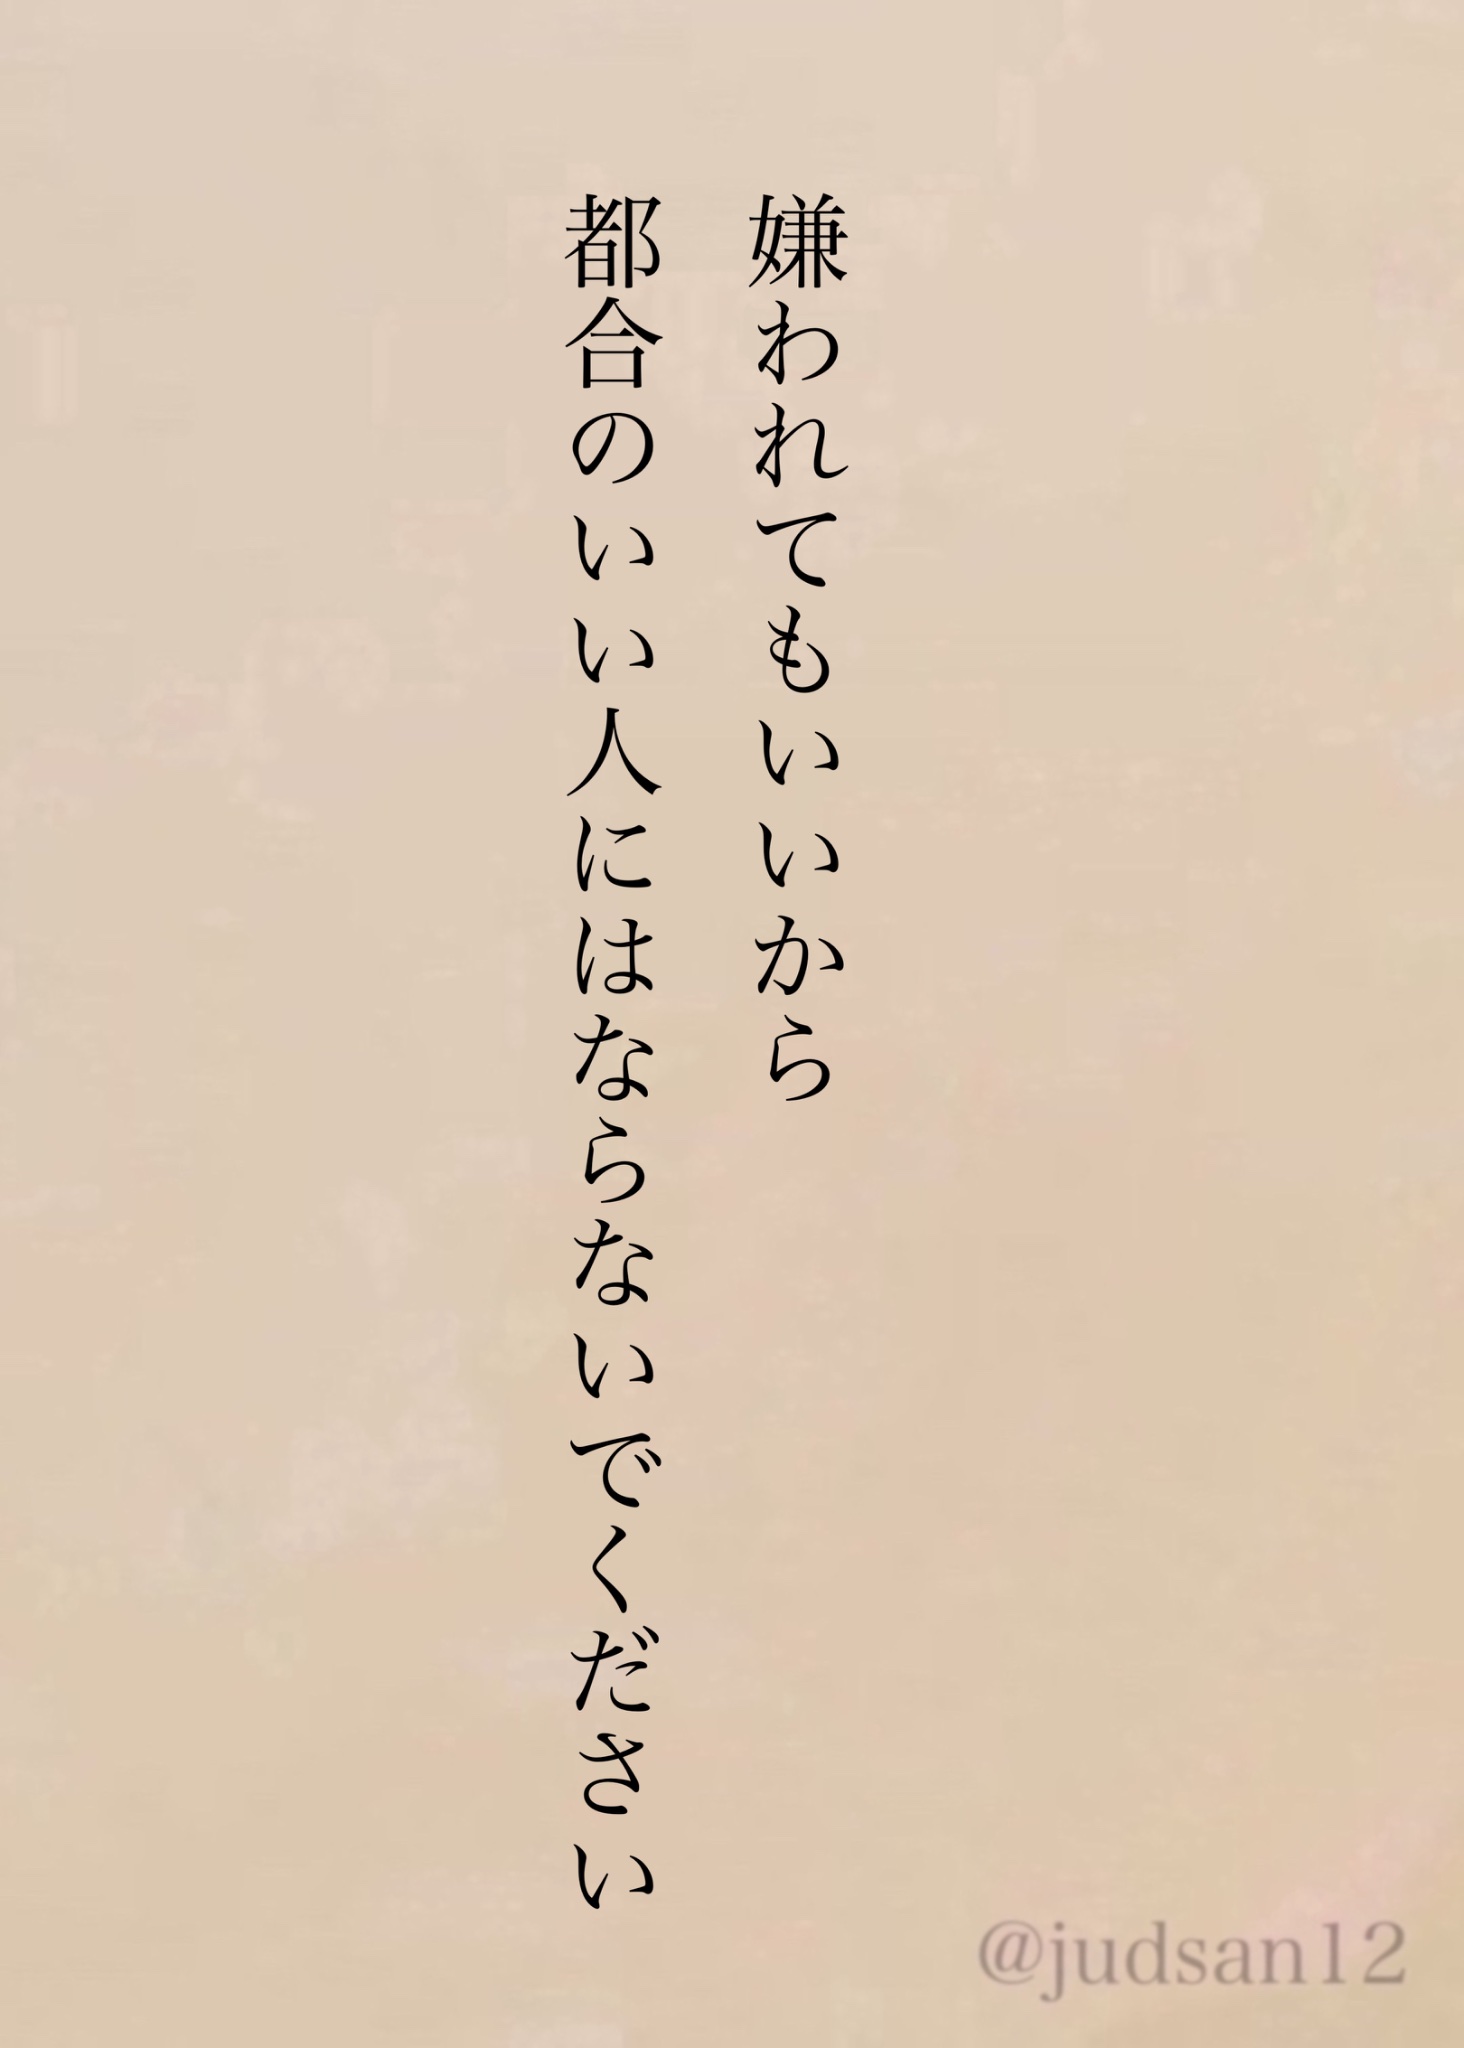 嫌われてもいいから
都合のいい人にはならないでください
@judsan12